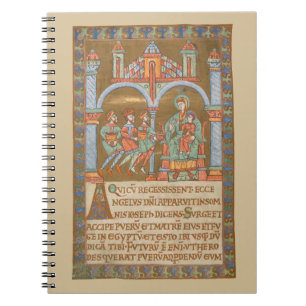 A QVI CV RECESSISSENT. ECCE
ANGELVS DNI APPARVIT INSOM
NIS IOSEPH DICENS. SVRGE ET
ACCIPE PVERV ET MATRE EIVS ET FV
GE IN EGYPTV ET ESTO IBI VSQ DV
DICA TIBI FVTVRV E ENI VT HERO
DES QVERAT PVERV AD PDENDV EVM